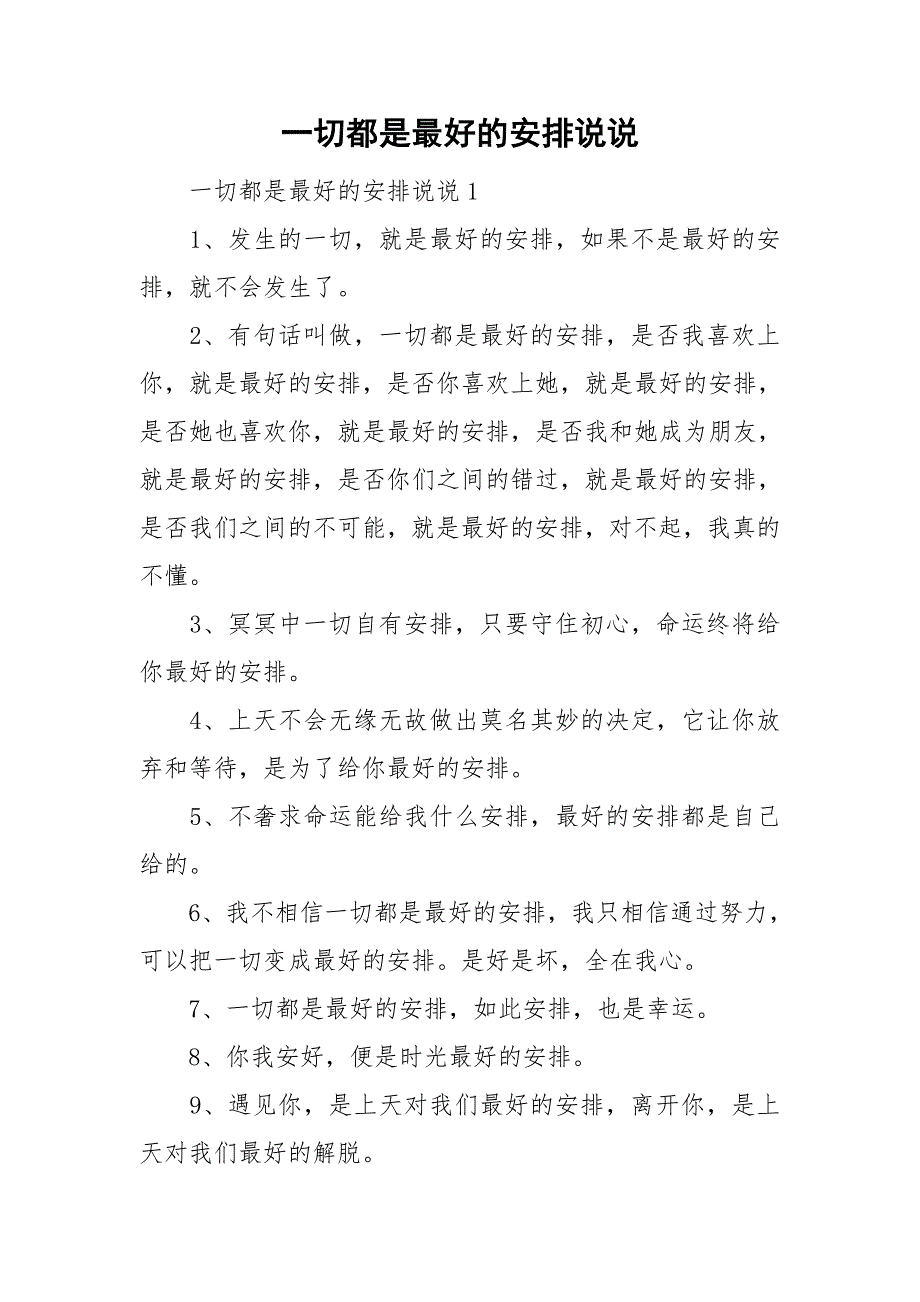 一切都是最好的安排说说
一切都是最好的安排说说 1
1、发生的一切，就是最好的安排，如果不是最好的安
排，就不会发生了。
2、有句话叫做，一切都是最好的安排，是否我喜欢上
你，就是最好的安排，是否你喜欢上她，就是最好的安排，
是否她也喜欢你，就是最好的安排，是否我和她成为朋友，
就是最好的安排，是否你们之间的错过，就是最好的安排，
是否我们之间的不可能，就是最好的安排，对不起，我真的
不懂。
3、冥冥中一切自有安排，只要守住初心，命运终将给
你最好的安排。
4、上天不会无缘无故做出莫名其妙的决定，它让你放
弃和等待，是为了给你最好的安排。
5、不奢求命运能给我什么安排，最好的安排都是自己
给的。
6、我不相信一切都是最好的安排，我只相信通过努力，
可以把一切变成最好的安排。是好是坏，全在我心。
7、一切都是最好的安排，如此安排，也是幸运。
8、你我安好，便是时光最好的安排。
9、遇见你，是上天对我们最好的安排，离开你，是上
天对我们最好的解脱。